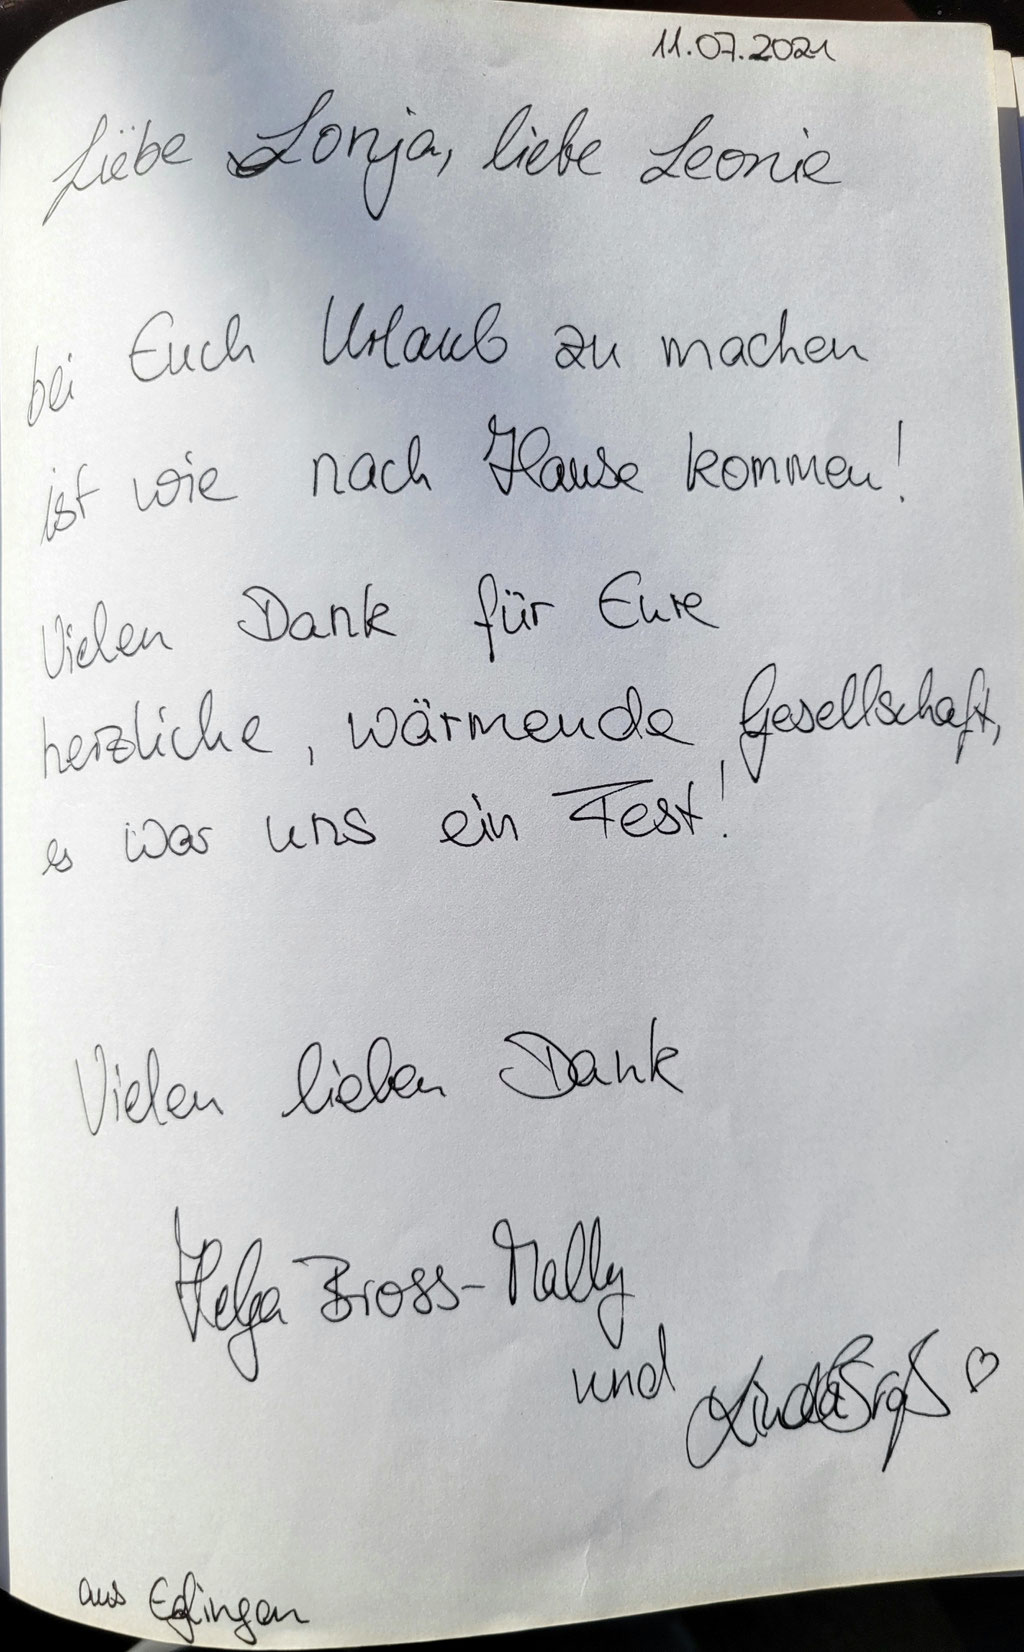 11.07.2021
Liebe Sonja, liebe Leonie
bei Euch Urlaub zu machen
ist wie nach Hause kommen!
Vielen Dank für Eure
herzliche, wärmende Gesellschaft,
es war uns ein Fest!
Vielen lieben Dank
Helga Bross-Mally
und Linda Broß ♡
aus Eglingen